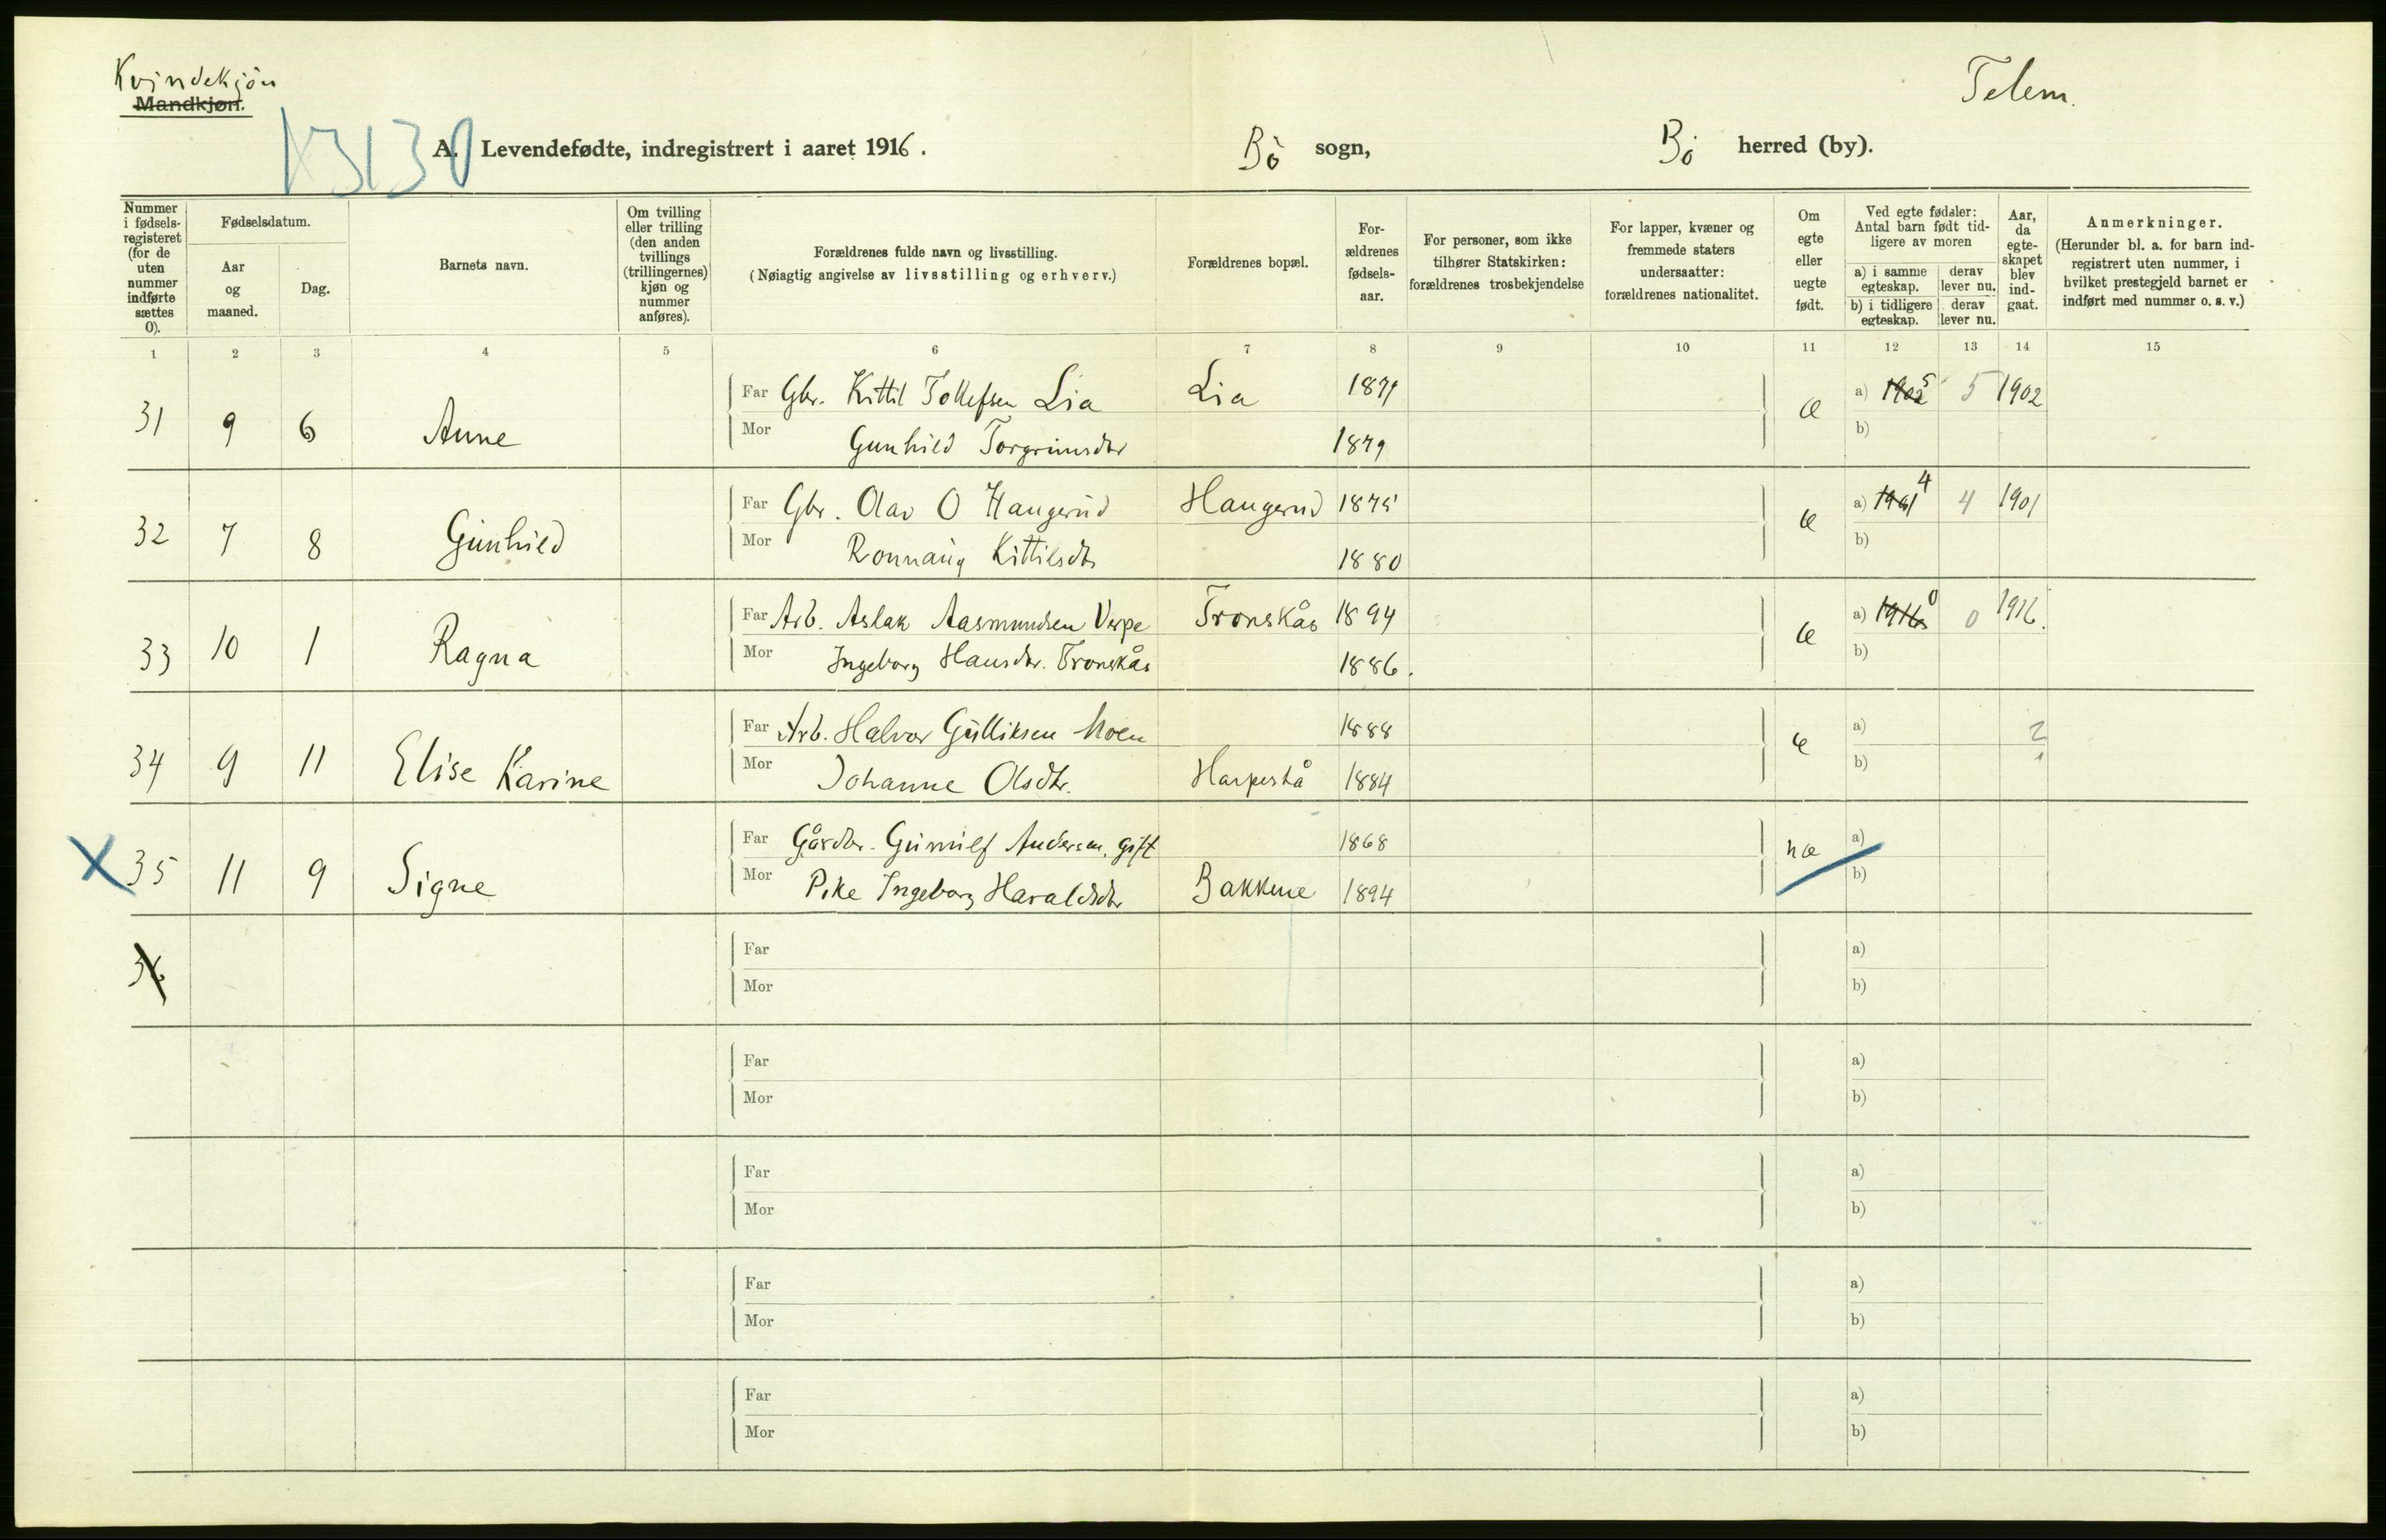 Kvindekjön
Mandkjøn.
Telem.
K3130
A. Levendefødte, indregistrert i aaret 1916. Bö sogn, Bö herred (by).
Nummer i fødsels-registeret (for de uten nummer indførte sættes 0).
Fødselsdatum.
Aar og maaned.
Dag.
Barnets navn.
Om tvilling eller trilling (den anden tvillings (trillingernes) kjøn og nummer anføres).
Forældrenes fulde navn og livsstilling.
(Nøiagtig angivelse av livsstilling og erhverv.)
Forældrenes bopæl.
For-ældrenes fødsels-aar.
For personer, som ikke tilhører Statskirken: forældrenes trosbekjendelse
For lapper, kvæner og fremmede staters undersaatter: forældrenes nationalitet.
Om egte eller uegte født.
Ved egte fødsler: Antal barn født tid-ligere av moren
a) i samme egteskap. derav lever nu.
b) i tidligere egteskap. derav lever nu.
Aar, da egte-skapet blev ind-gaat.
Anmerkninger.
(Herunder bl. a. for barn ind-registrert uten nummer, i hvilket prestegjeld barnet er indført med nummer o. s. v.)
1 2 3 4 5 6 7 8 9 10 11 12 13 14 15
Far Gbr. Kittil Tollefsen Lia Lia 1879 a) 1902 5 5 1902
31 9 6 Anne æ
Mor Gunhild Torgrimsdtr 1879 b)
Far Gbr. Olav O Haugerud Haugerud 1875 a) 1901 4 4 1901
32 7 8 Gunhild æ
Mor Ronnaug Kittilsdtr 1880 b)
Far Arb. Aslak Aasmundsen Verpe Tronskås 1894 a) 1916 0 0 1916.
33 10 1 Ragna æ
Mor Ingeborg Hansdtr. Tronskås 1886. b)
Far Arb. Halvor Gulliksen Moen 1888 a) 2
34 9 11 Elise Karine æ
Mor Johanne Olsdtr. Harpeskå 1884 b)
Far Gårdbr. Gunnulf Andersen, gift 1868 a)
X 35 11 9 Signe uæ
Mor Pike Ingeborg Haraldsdtr Bakkene 1894 b)
Far a)
36
Mor b)
Far a)
Mor b)
Far a)
Mor b)
Far a)
Mor b)
Far a)
Mor b)